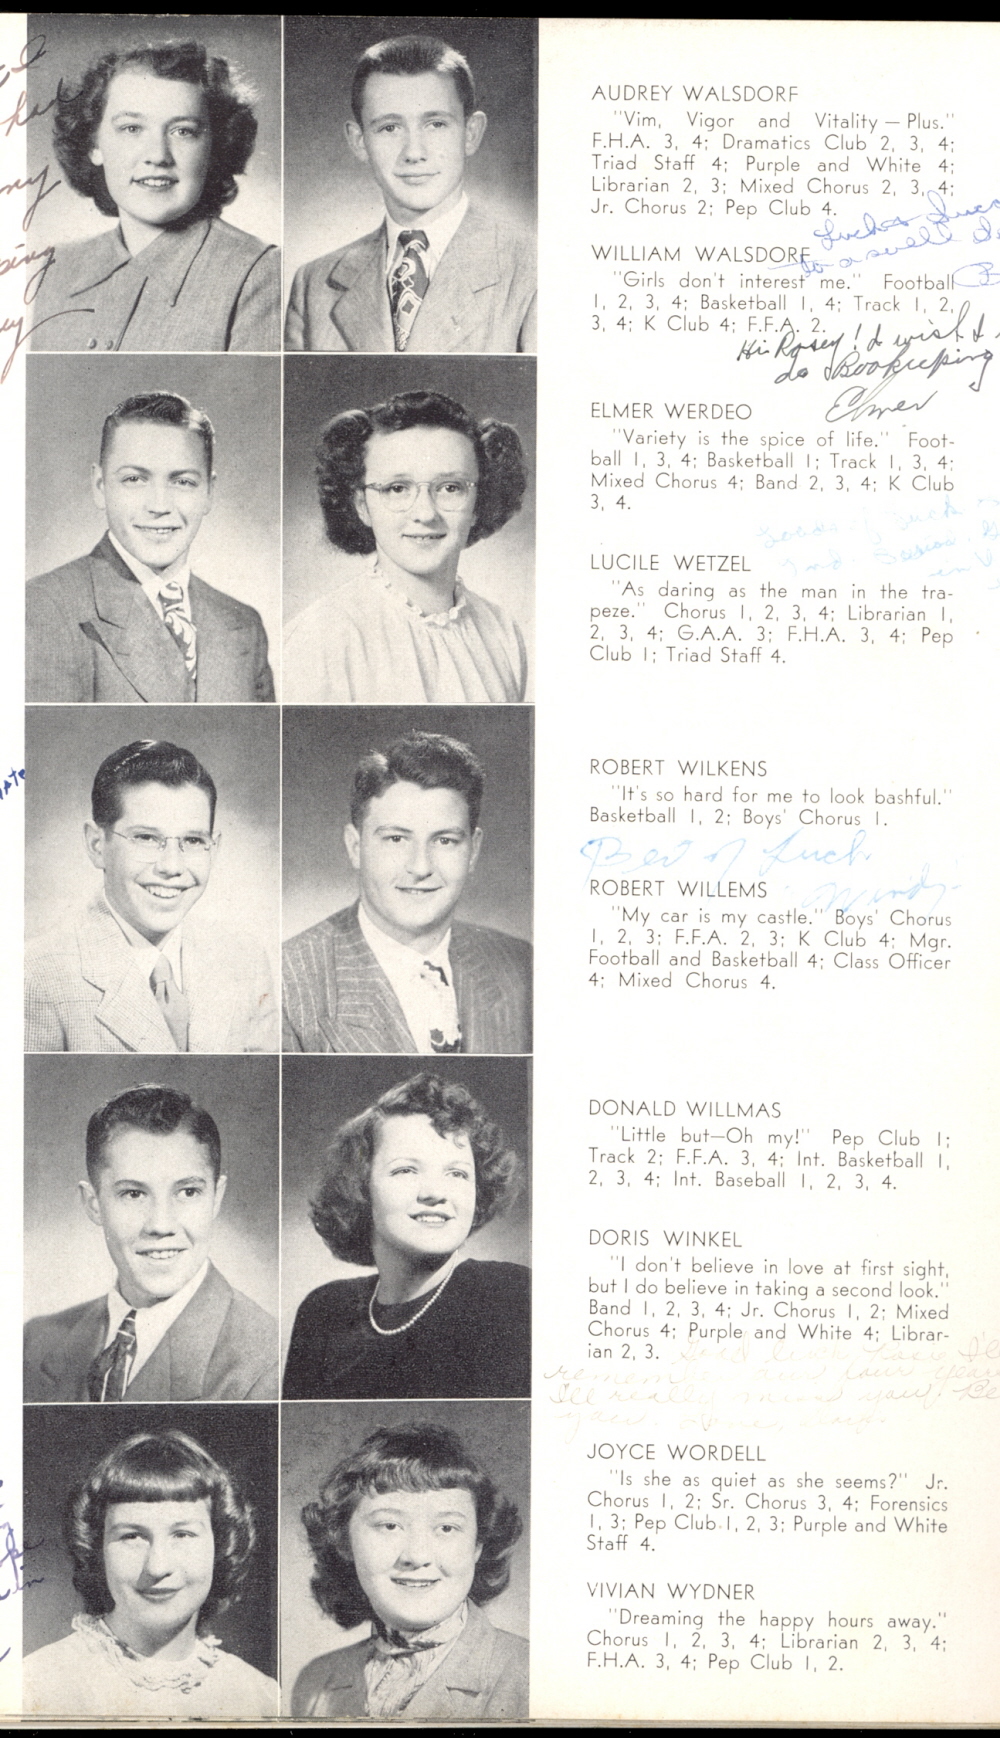 AUDREY WALSDORF
"Vim, Vigor and Vitality — Plus."
F.H.A. 3, 4; Dramatics Club 2, 3, 4;
Triad Staff 4; Purple and White 4;
Librarian 2, 3; Mixed Chorus 2, 3, 4;
Jr. Chorus 2; Pep Club 4.
to a swell
WILLIAM WALSDORF
"Girls don't interest me." Football
1, 2, 3, 4; Basketball 1, 4; Track 1, 2,
3, 4; K Club 4; F.F.A. 2.
Hi Rosey! I wish I
do Bookeeping
Elmer
ELMER WERDEO
"Variety is the spice of life." Foot-
ball 1, 3, 4; Basketball 1; Track 1, 3, 4;
Mixed Chorus 4; Band 2, 3, 4; K Club
3, 4.
Loads of luck
LUCILE WETZEL
"As daring as the man in the tra-
peze." Chorus 1, 2, 3, 4; Librarian 1,
2, 3, 4; G.A.A. 3; F.H.A. 3, 4; Pep
Club 1; Triad Staff 4.
ROBERT WILKENS
"It's so hard for me to look bashful."
Basketball 1, 2; Boys' Chorus 1.
Best of Luck
Windy
ROBERT WILLEMS
"My car is my castle." Boys' Chorus
1, 2, 3; F.F.A. 2, 3; K Club 4; Mgr.
Football and Basketball 4; Class Officer
4; Mixed Chorus 4.
DONALD WILLMAS
"Little but—Oh my!" Pep Club 1;
Track 2; F.F.A. 3, 4; Int. Basketball 1,
2, 3, 4; Int. Baseball 1, 2, 3, 4.
DORIS WINKEL
"I don't believe in love at first sight,
but I do believe in taking a second look."
Band 1, 2, 3, 4; Jr. Chorus 1, 2; Mixed
Chorus 4; Purple and White 4; Librar-
ian 2, 3.
Good luck Rosie I'll
remember our four years
I'll really miss you. Be
JOYCE WORDELL
"Is she as quiet as she seems?" Jr.
Chorus 1, 2; Sr. Chorus 3, 4; Forensics
1, 3; Pep Club 1, 2, 3; Purple and White
Staff 4.
VIVIAN WYDNER
"Dreaming the happy hours away."
Chorus 1, 2, 3, 4; Librarian 2, 3, 4;
F.H.A. 3, 4; Pep Club 1, 2.